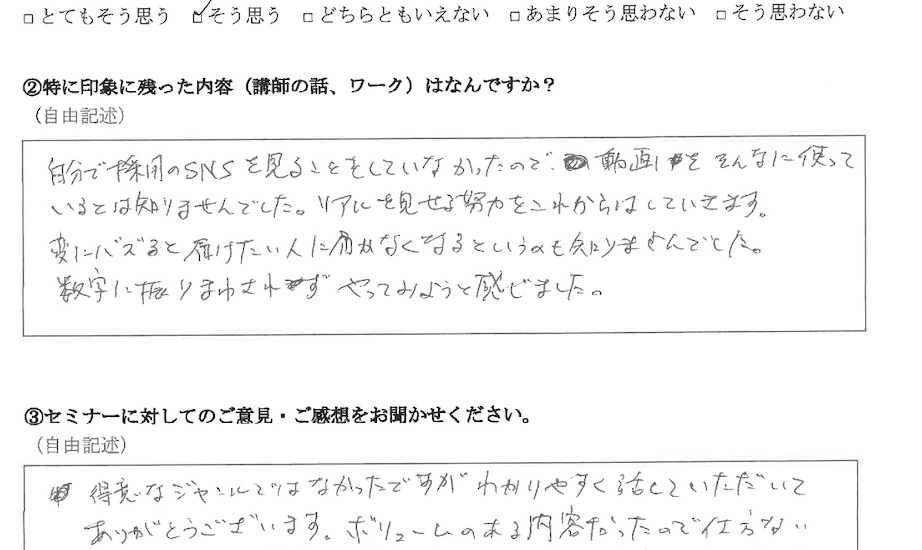 □とてもそう思う ☑そう思う □どちらともいえない □あまりそう思わない □そう思わない
②特に印象に残った内容（講師の話、ワーク）はなんですか？
（自由記述）
自分で採用のSNSを見ることをしていなかったので、動画をそんなに使って
いるとは知りませんでした。リアルを見せる努力をこれからはしていきます。
変にバズると届けたい人に届かなくなるというのも知りませんでした。
数字に振りまわされずやってみようと感じました。
③セミナーに対してのご意見・ご感想をお聞かせください。
（自由記述）
得意なジャンルではなかったですがわかりやすく話していただいて
ありがとうございます。ボリュームのある内容だったので仕方ない